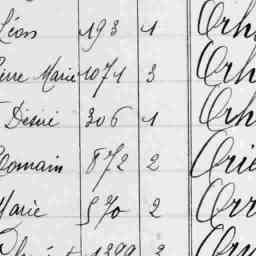 Léon 193 1 Orh
Pierre Marie 1071 3 Orh
Désiré 306 1 Orh
Romain 872 2 Orie
Marie 570 2 Orr
1299